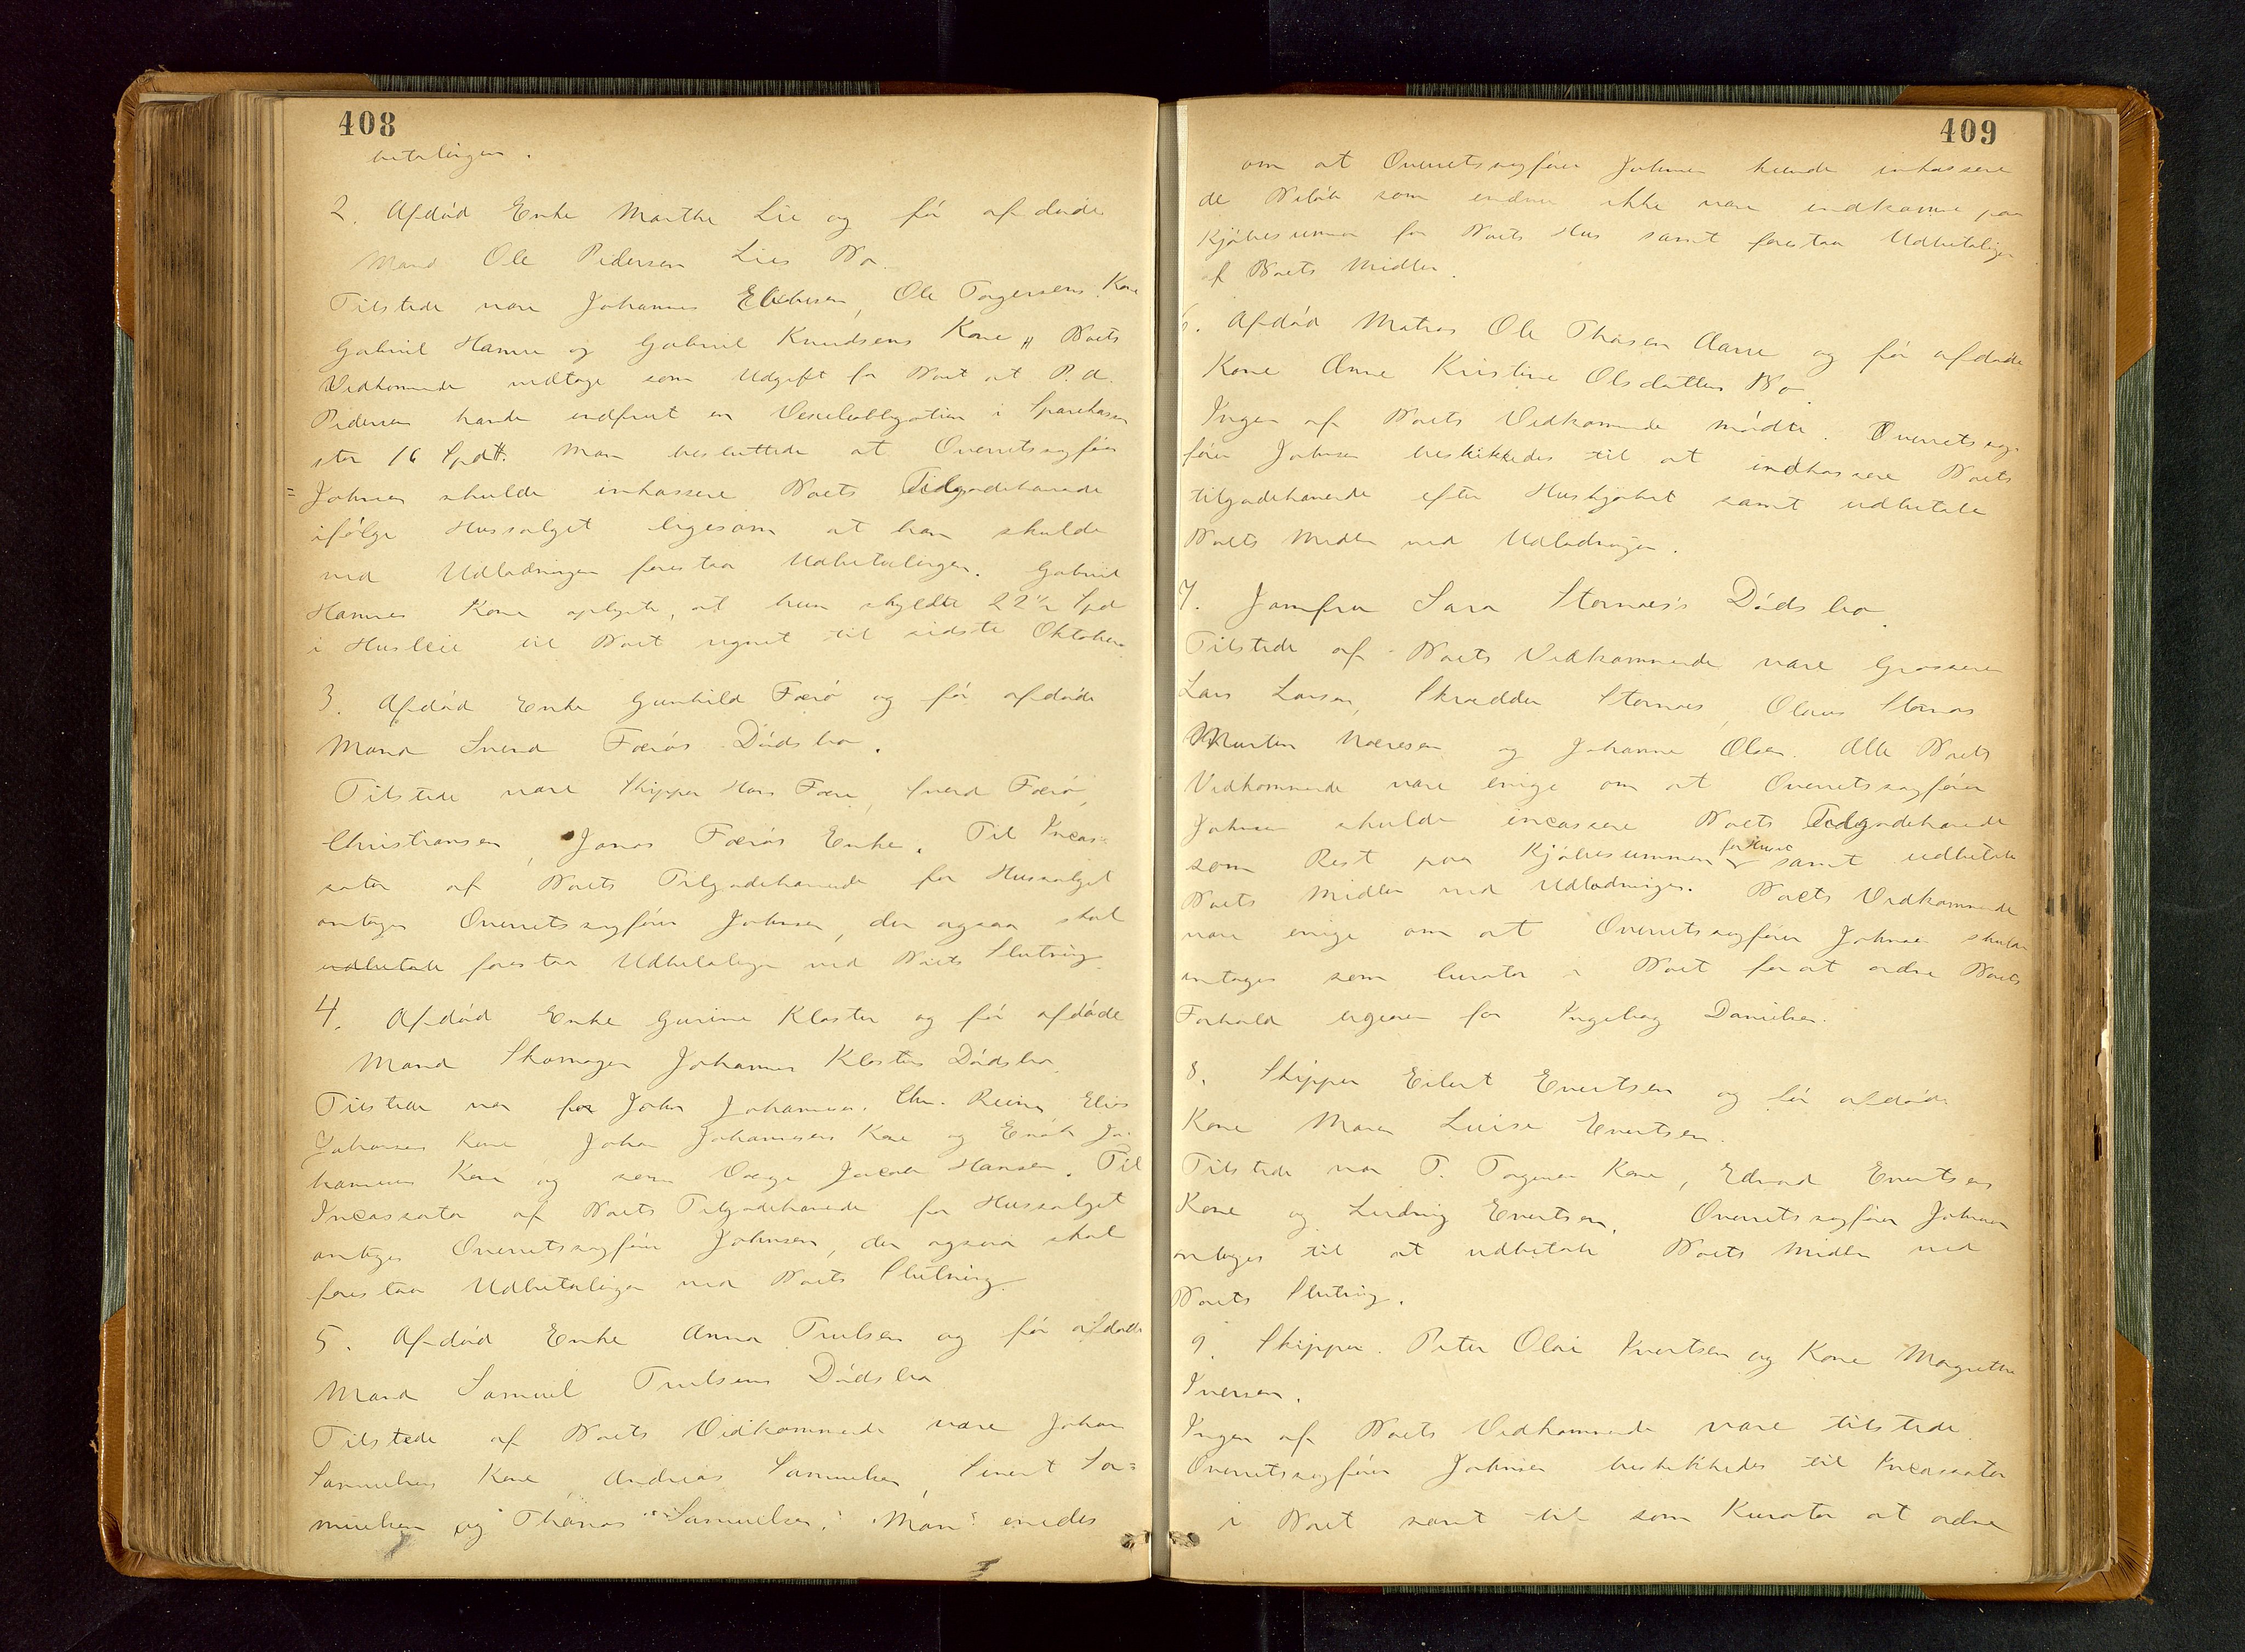 408
betalingen.
2. Afdød Enke Marthe Lie og før afdøde
Mand Ole Pedersen Lies Bo.
Tilstede vare Johannes Ellebesen, Ole Torgersens Kone
Gabriel Hamre og Gabriel Knudsens Kone. Boets
Vedkommende vedtoge som Udgift for Boet at P. A.
Pedersen havde indfriet en Vexelobligation i Sparekassen
stor 16 Spd. Man besluttede at Overretssagfører
Johnsen skulde inkassere Boets Tilgodehavende
ifølge Hussalget ligesom at han skulde
ved Udlodningen forestaa Udbetalingen. Gabriel
Hamres Kone oplyste, at hun skyldte 22½ Spd
i Husleie til Boet regnet til sidste Oktober
3. Afdød Enke Gunhild Færø og før afdøde
Mand Svend Færøs Dødsbo.
Tilstede vare Skipper Hans Færø, Svend Færø,
Christiansen, Jonas Færøs Enke. Til Incas-
sator af Boets Tilgodehavende for Hussalget
antoges Overretssagfører Johnsen, der ogsaa skal
udbetale forestaa Udbetalingen ved Boets Slutning.
4. Afdød Enke Gurine Kloster og før afdøde
Mand Skomager Johannes Klosters Dødsbo.
Tilstede var for John Johannesen, Chr. Reime, Elias
Johansens Kone Johan Johannesens Kone og Enok Jo-
hannesens Kone og som Værge Jacob Hansen. Til
Incassator af Boets Tilgodehavende for Hussalget
antoges Overretssagfører Johnsen, der ogsaa skal
forestaa Udbetalingen ved Boets Slutning.
5. Afdød Enke Anna Trulsen og før afdøde
Mand Samuel Trulsens Dødsbo
Tilstede af Boets Vedkommende vare Johan
Samuelsens Kone, Andreas Samuelsen, Sivert Sa-
muelsen og Thomas Samuelsen. Man enedes
409
om at Overretssagfører Johnsen kunde inkassere
de Beløb som endnu ikke vare indkomne paa
Kjøbesummen for Boets Hus samt forestaa Udbetalingen
af Boets Midler.
6. Afdød Matros Ole Thosen Aarre og før afdøde
Kone Anne Kristine Olsdatters Bo.
Ingen af Boets Vedkommende mødte. Overretssag-
fører Johnsen beskikkedes til at indkassere Boets
tilgodehavende efter Huskjøbet samt udbetale
Boets Midler ved Udlodningen.
7. Jomfru Sara Stornæs's Dødsbo.
Tilstede af Boets Vedkommende vare Grosserer
Lars Larsen, Skrædder Stornæs, Olaus Stornæs
Martin Naeresen og Johanne Olsen. Alle Boets
Vedkommende vare enige om at Overretssagfører
Johnsen skulde incassere Boets Tilgodehavende
som Rest paa Kjøbesummen for Huset samt udbetale
Boets Midler ved Udlodningen. Boets Vedkommende
vare enige om at Overretssagfører Johnsen skulde
antages som Curator i Boet for at ordne Boets
Forhold ligeover for Ingeborg Danielsen.
8. Skipper Eilert Evertsen og før afdøde
Kone Maren Luise Evertsen.
Tilstede var T. Torgersens Kone, Edvard Evertsens
Kone og Ludvig Evertsen. Overretssagfører Johnsen
antoges til at udbetale Boets Midler ved
Boets Slutning.
9. Skipper Peter Olai Ivertsen og Kone Margrethe
Iversen.
Ingen af Boets Vedkommende vare tilstede.
Overretssagfører Johnsen beskikkedes til Incassator
i Boet samt til som Kurator at ordne